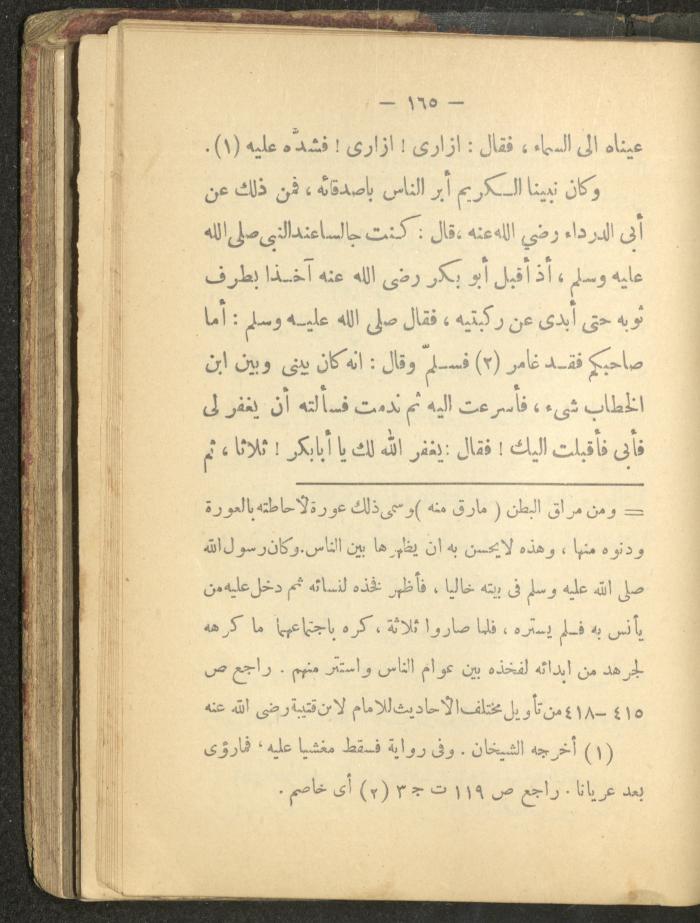 — ١٦٥ —
عيناه الى السماء ، فقال : ازارى ! ازارى ! فشدَّه عليه (١) .
وكان نبينا الكريم أبر الناس باصدقائه ، فمن ذلك عن
أبى الدرداء رضي الله عنه ،قال : كنت جالسا عند النبى صلى الله
عليه وسلم ، أذ أقبل أبو بكر رضى الله عنه آخذا بطرف
ثوبه حتى أبدى عن ركبتيه ، فقال صلى الله عليه وسلم : أما
صاحبكم فقد غامر (٢) فسلمّ وقال : انه كان بينى وبين ابن
الخطاب شىء ، فأسرعت اليه ثم ندمت فسألته أن يغفر لى
فأبى فأقبلت اليك ! فقال :يغفر الله لك يا أبا بكر ! ثلاثا ، ثم
= ومن مراق البطن ( مارق منه )وسمى ذلك عورة لأحاطته بالعورة
ودنوه منها ، وهذه لايحسن به ان يظهرها بين الناس.وكان رسول الله
صلى الله عليه وسلم فى بيته خاليا ، فأظهر فخذه لنسائه ثم دخل عليه من
يأنس به فلم يستره ، فلما صاروا ثلاثة ، كره باجتماعهما ما كرهه
لجرهد من ابدائه لفخذه بين عوام الناس واستتر منهم . راجع ص
٤١٥ –٤١٨ من تأويل مختلف الأحاديث للامام لابن قتيبة رضى الله عنه
(١) أخرجه الشيخان . وفى رواية فسقط مغشيا عليه ، فمارؤى
بعد عريانا . راجع ص ١١٩ ت ج ٣ (٢) أى خاصم .